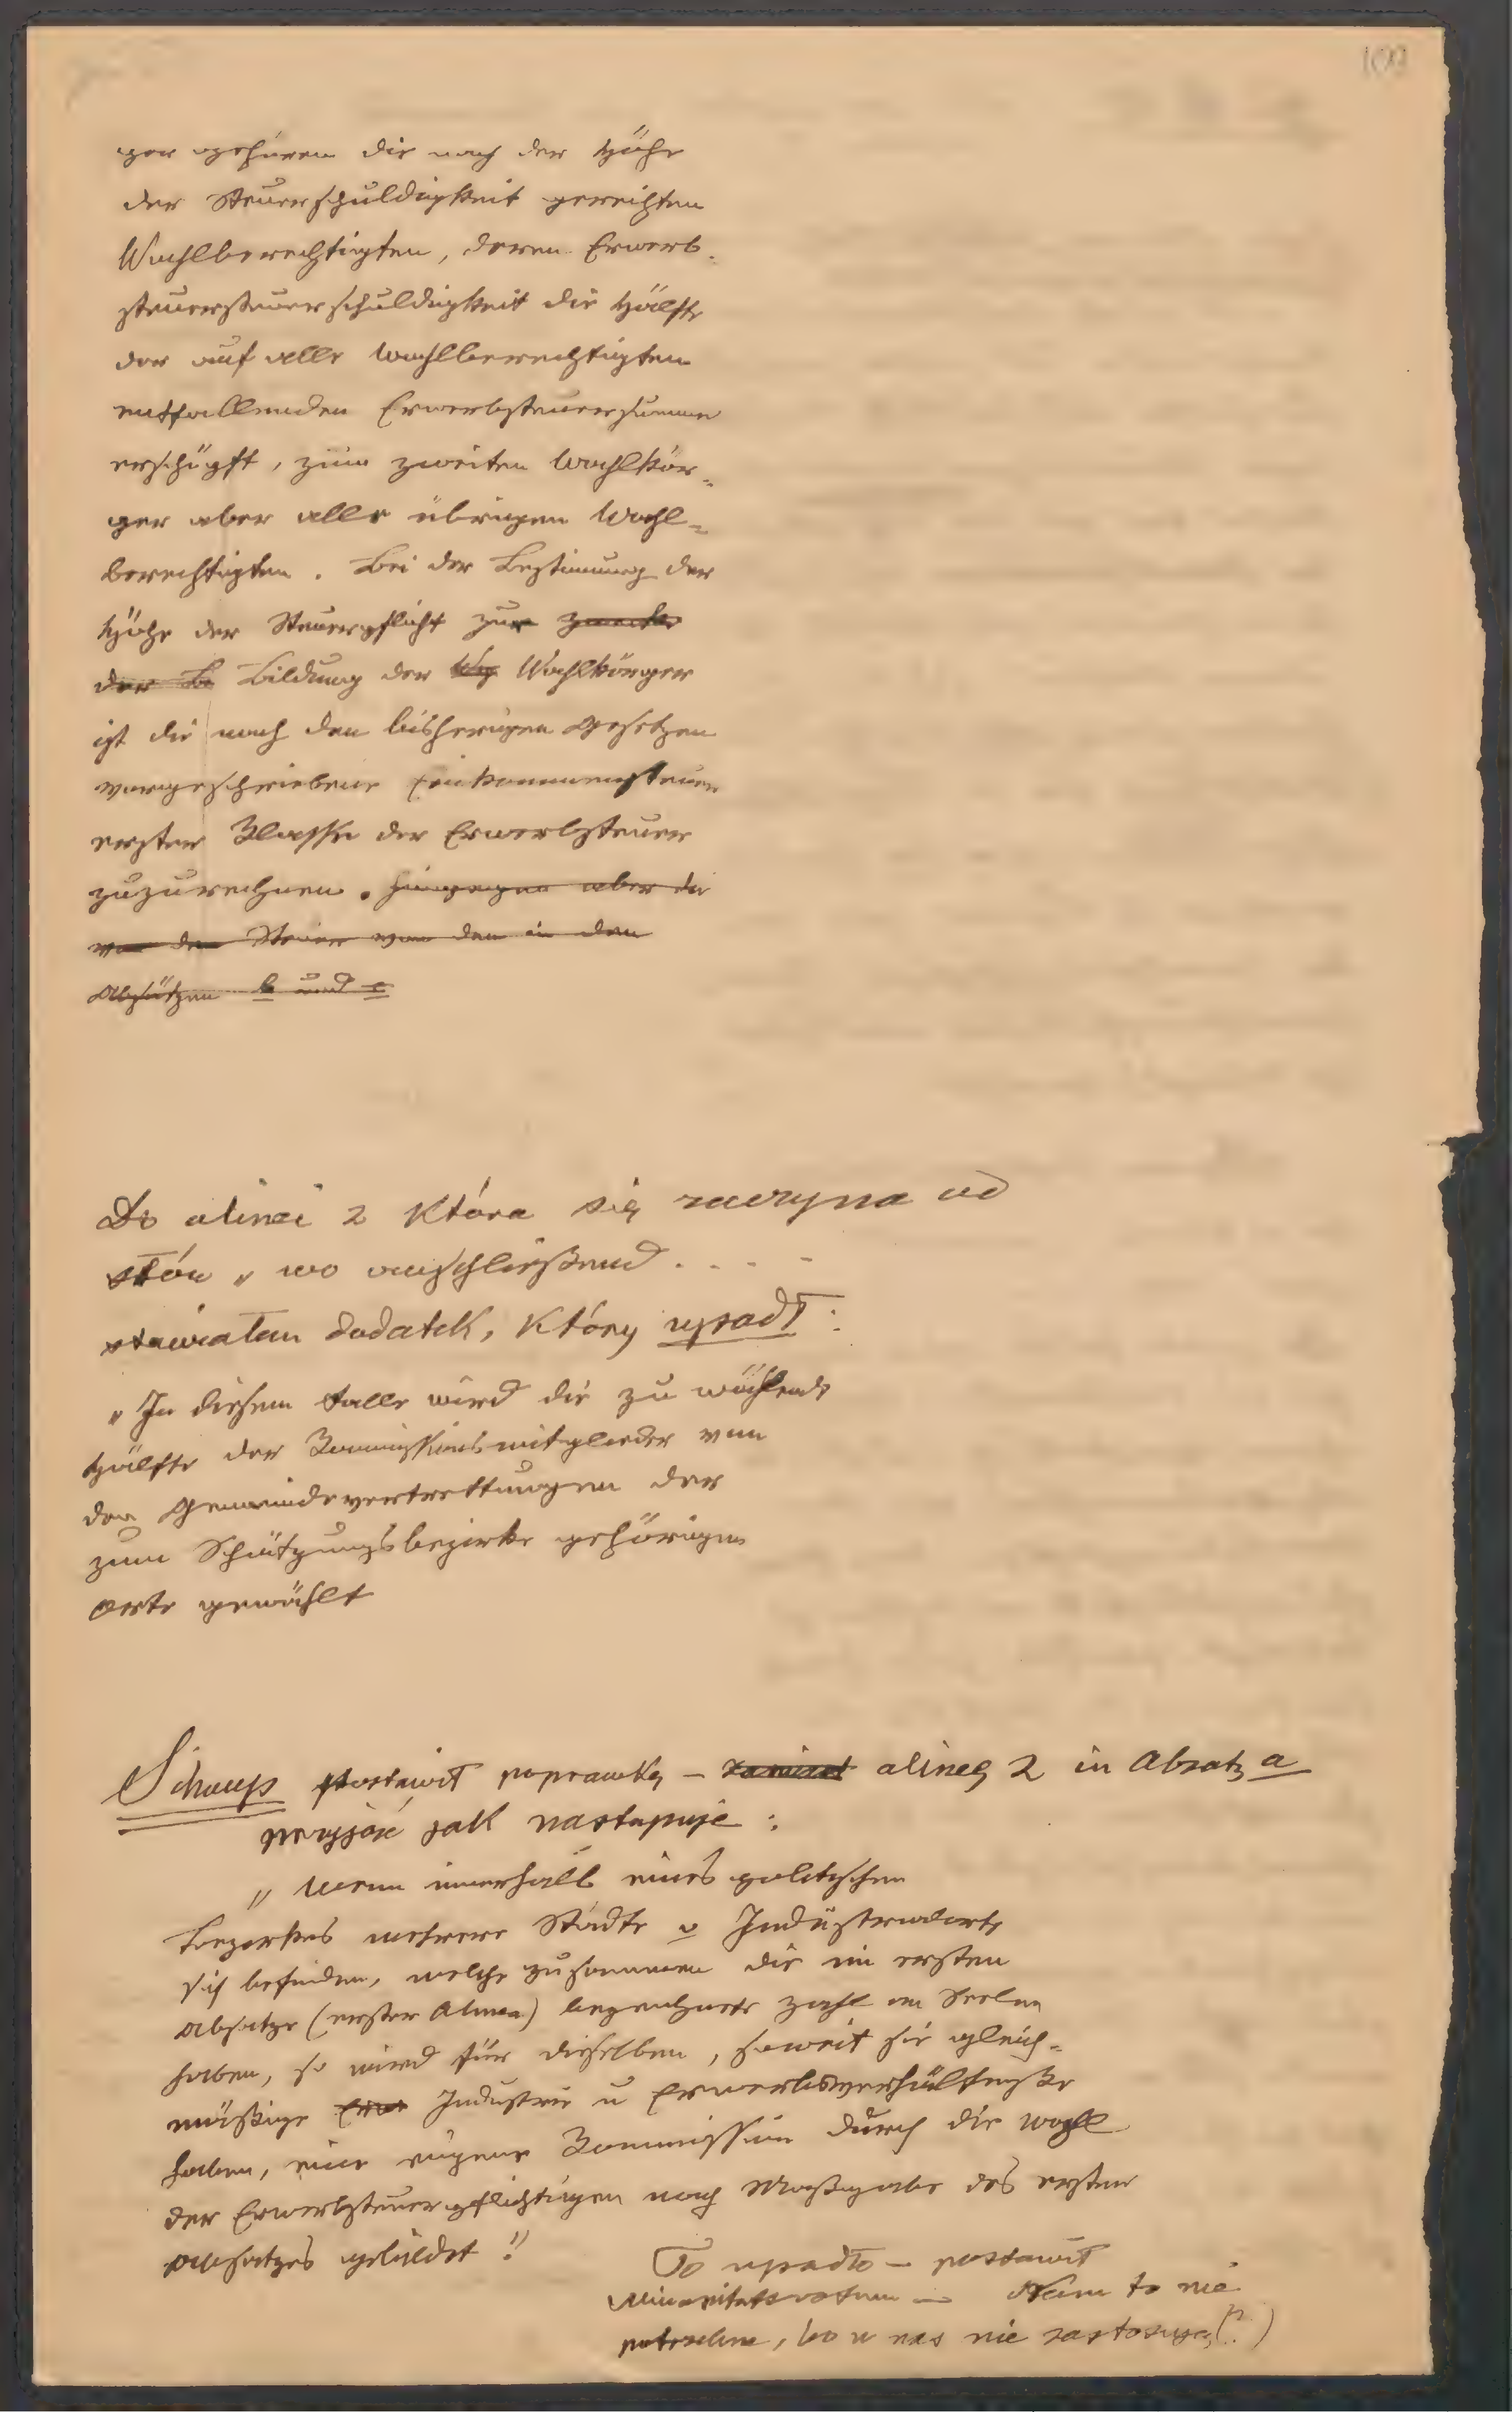 per gehören die nach der Höhe
der Steuerschuldigkeit gereihten
Wahlberechtigten, deren Erwerb-
steuersteuerschuldigkeit die Hälfte
der auf alle Wahlberechtigten
entfallenden Erwerbsteuersumme
erschöpft, zum zweiten Wahlkör=
per aber alle übrigen Wahl=
berechtigten. Bei der Bestimmung der
Höhe der Steuerpflicht zur Zwecke
der Be Bildung der Wahlkörper
ist die nach den bisherigen Gesetzen
vorgeschriebene Einkommensteuer
erster Klasse der Erwerbsteuer
zuzurechnen. hingegen aber die
von den Steuer von den in den
Absätzen b und c
Do alinei 2 która się zaczyna od
słów „wo anschließend . . . .
stawiałem dodatek, który upadł:
„In diesem Falle wird die zu wählende
Hälfte der Kommissionsmitglieder von
den Gemeindevertrettungen der
zum Schätzungsbezirke gehörigen
Orte gewählt
Schwups postawił poprawkę – alineę 2 in Absatz a
przyjąć jak następuje:
„Wenn innerhalb eines politischen
Bezirkes mehrere Städte o Industrialorte
sich befinden, welche zusammen die im ersten
Absatze (erster Alinea) bezeichnete Zahl an Seelen
haben, so wird für dieselben, soweit sie gleich=
mäßige Erwe Industrie u Erwerbsverhältnisse
haben, eine eigene Kommission durch die Wahl
der Erwerbsteuerpflichtigen nach Maßgabe des ersten
Absatzes gebildet!"
To upadło – postawił
Minoritätsvotum — Nam to nie
potrzebne, bo u nas nie zastosują (?)